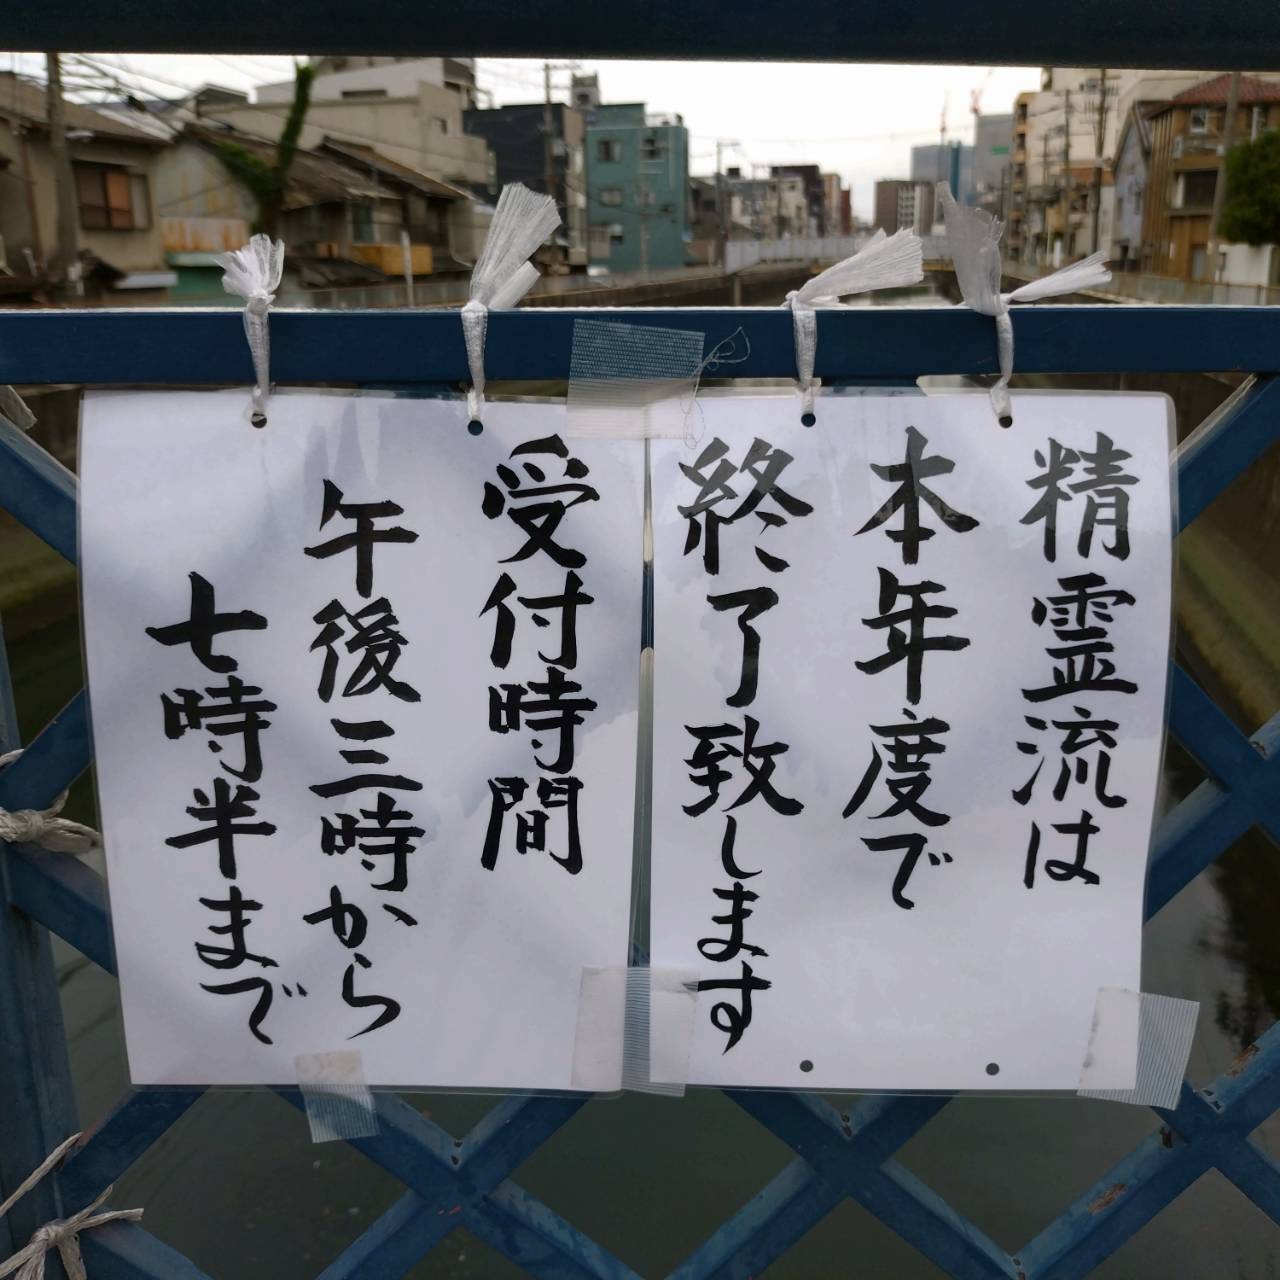 精霊流は
本年度で
終了致します
受付時間
午後三時から
七時半まで